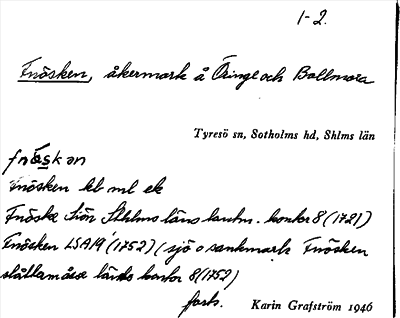 1-2.
Fnösken, åkermark å Öringe och Bollmora
Tyresö sn, Sotholms hd, Shlms län
fnöskən
Fnösken kb ml ek
Fnöske Siön Sthlms läns lantm. kontor 8 (1721)
Fnösken LSA A9 (1752) (sjö o sankmark Fnösken
slåttamåsse länds kontor 8 (1752)
forts.
Karin Grafström 1946